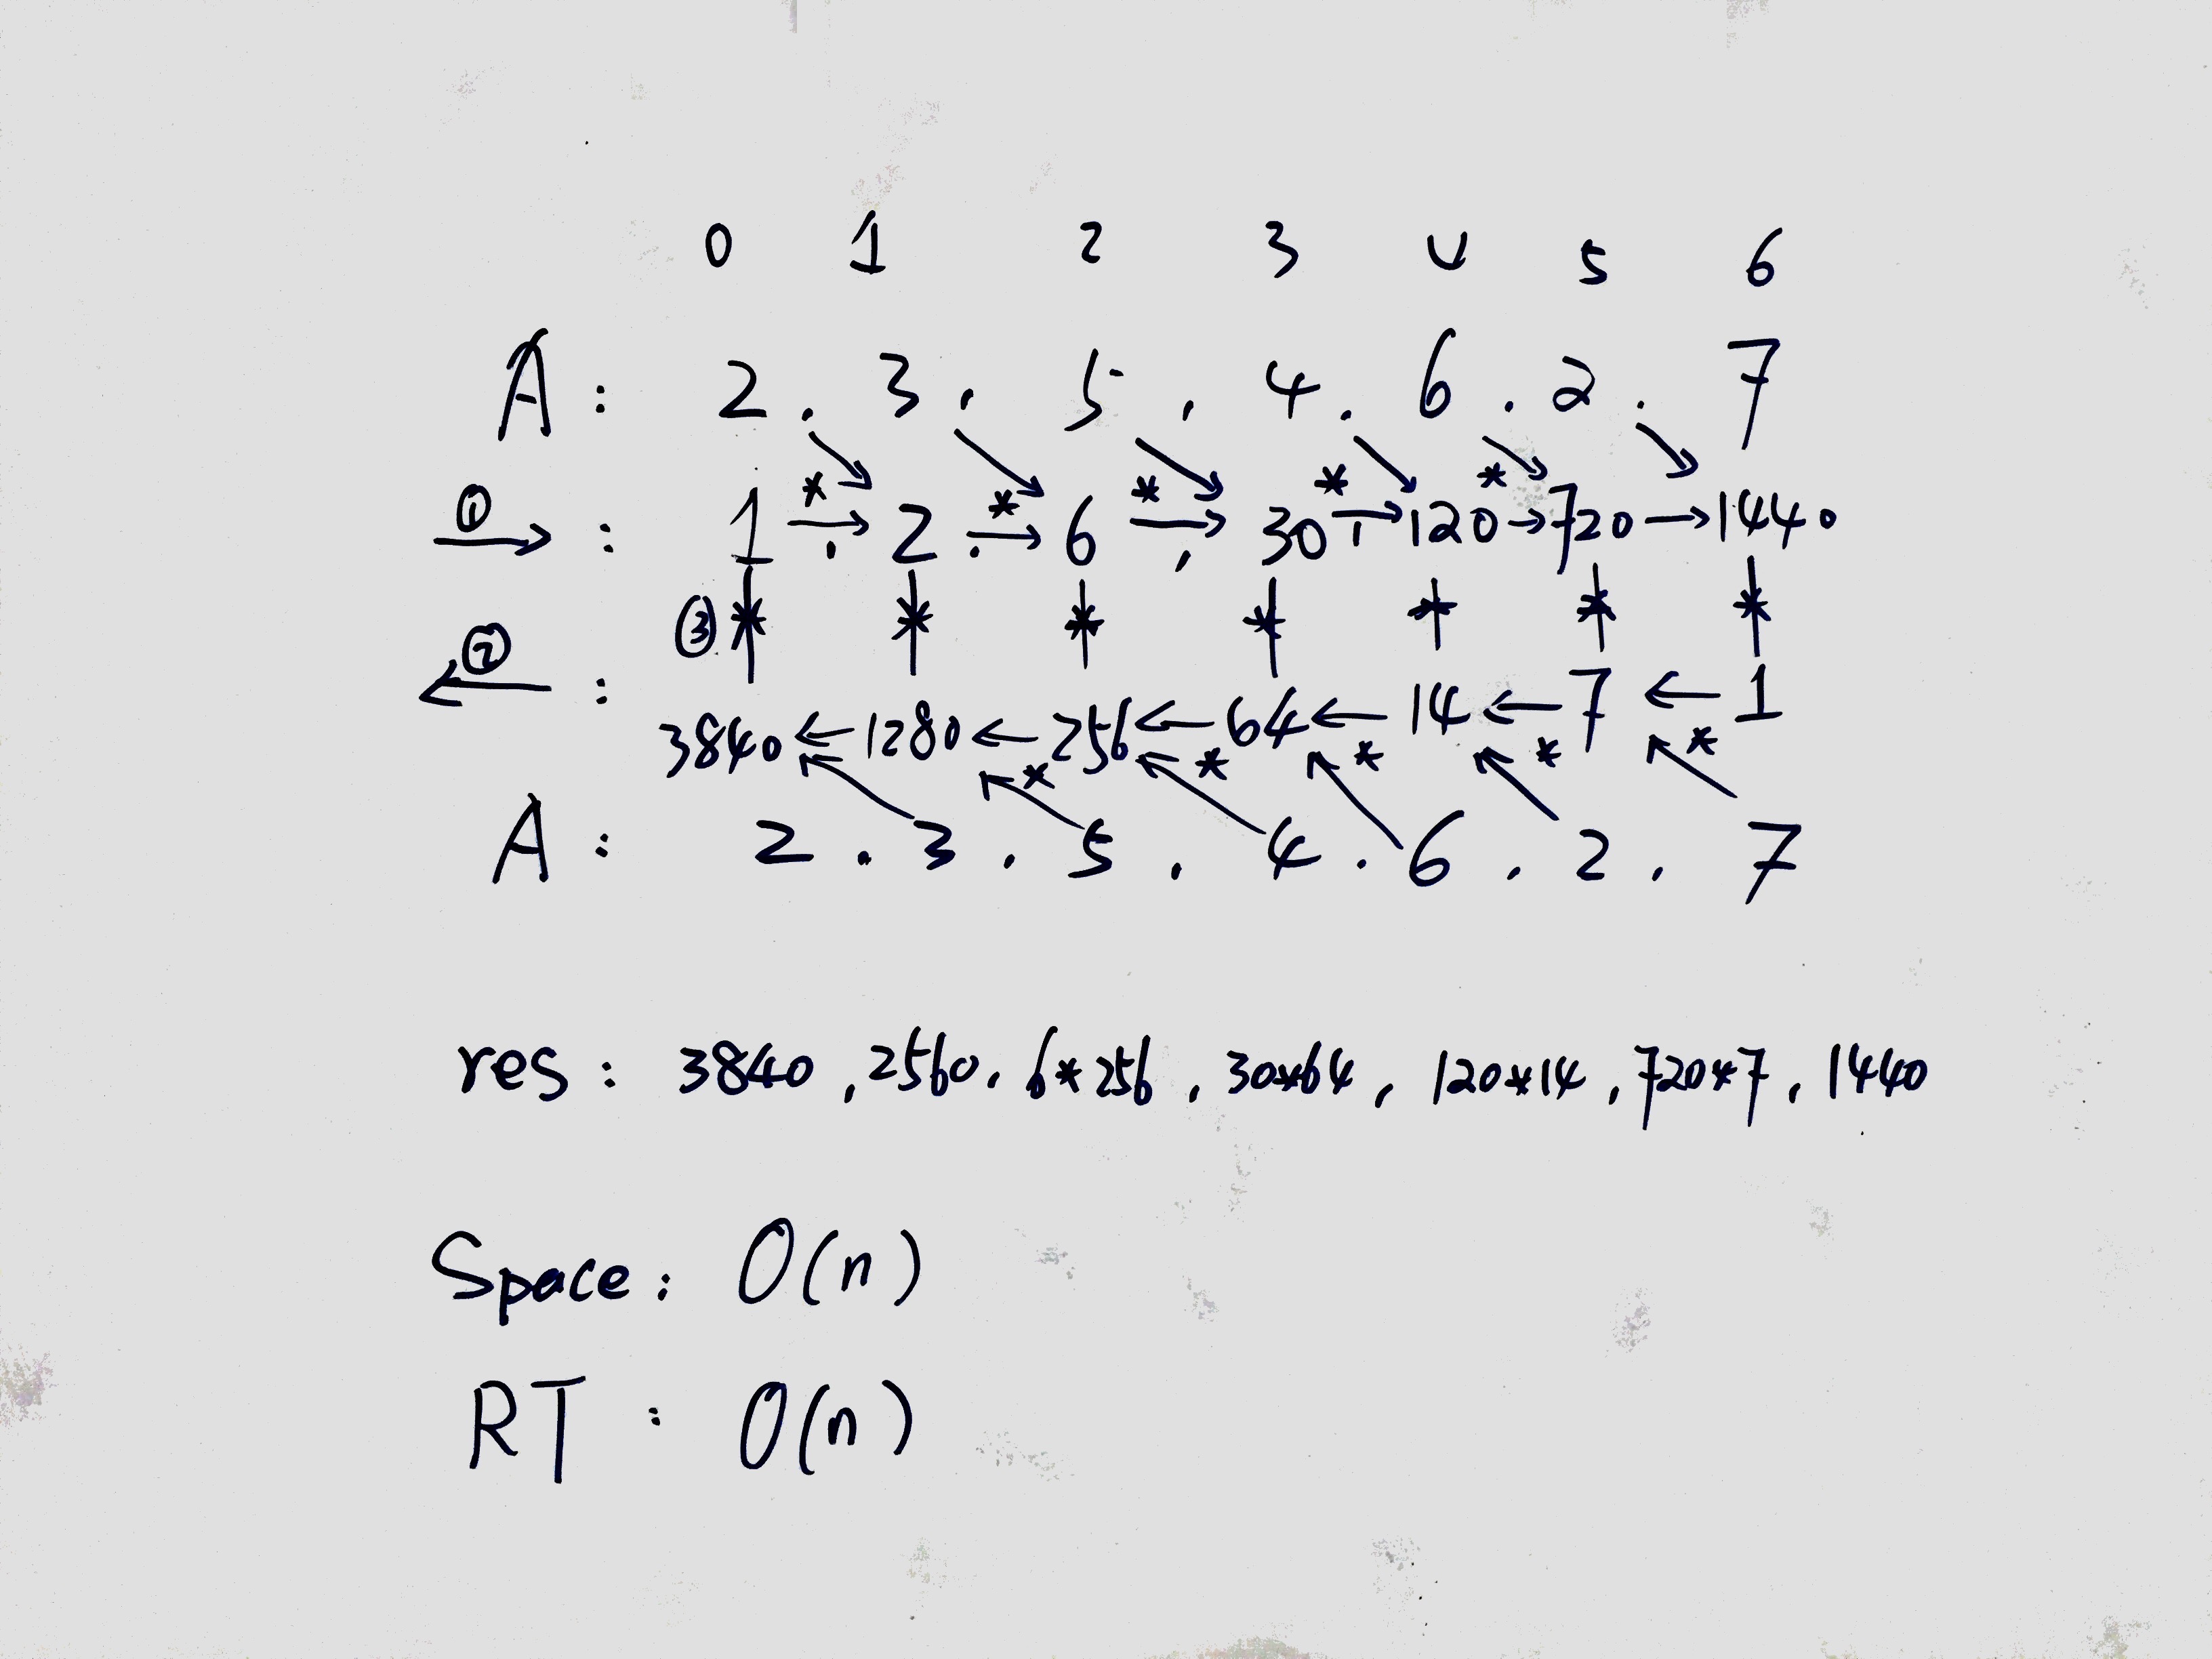 0 1 2 3 4 5 6
A : 2 . 3 . 5 , 4 . 6 . 2 . 7
① → : 1 * → , 2 * . → 6 * → , 30 * → , 120 * → 720 → 1440
③ * * * * * * *
② ← : 3840 ← 1280 ← * 256 ← * 64 ← * 14 ← * 7 ← * 1
A : 2 . 3 . 5 . 4 . 6 . 2 . 7
res : 3840 , 2560 . 6*256 , 30*64 , 120*14 , 720*7 , 1440
Space : O(n)
RT : O(n)